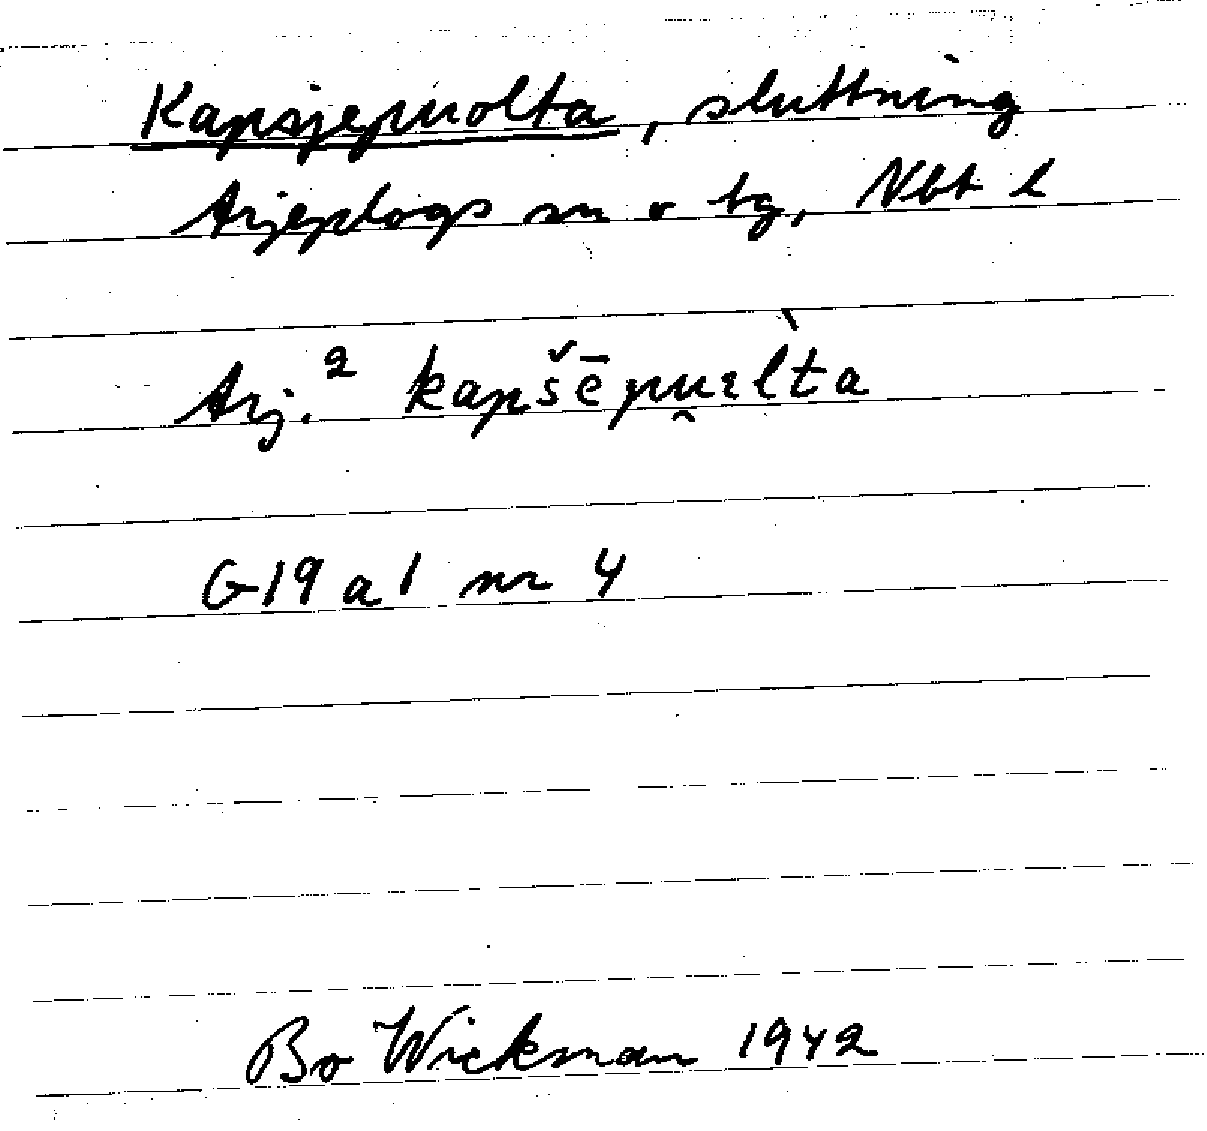 Kapsjepuolta, sluttning
Arjeplogs sn o tg, Nbt l
Arj.² kapšēpu̯ɛl̀ta
G19 a 1 nr 4
Bo Wickman 1942